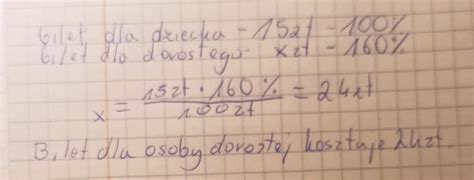 bilet dla dziecka - 15zł - 100%
bilet dla dorosłego - xzł - 160%
x = 15zł · 160% / 100zł = 24zł
Bilet dla osoby dorosłej kosztuje 24zł.